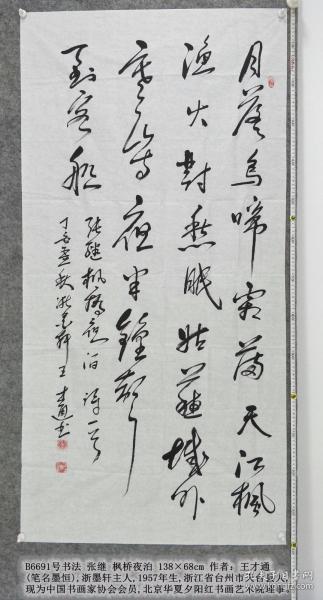 月落烏啼霜滿天江楓
漁火對愁眠姑蘇城外
寒山寺夜半鐘聲
到客船
張繼楓橋夜泊詩一首
丁酉孟秋浙墨軒王才通书
B6691号书法 张继 枫桥夜泊 138×68cm 作者：王才通
(笔名墨恒),浙墨轩主人,1957年生,浙江省台州市天台县人,
现为中国书画家协会会员,北京华夏夕阳红书画艺术院理事